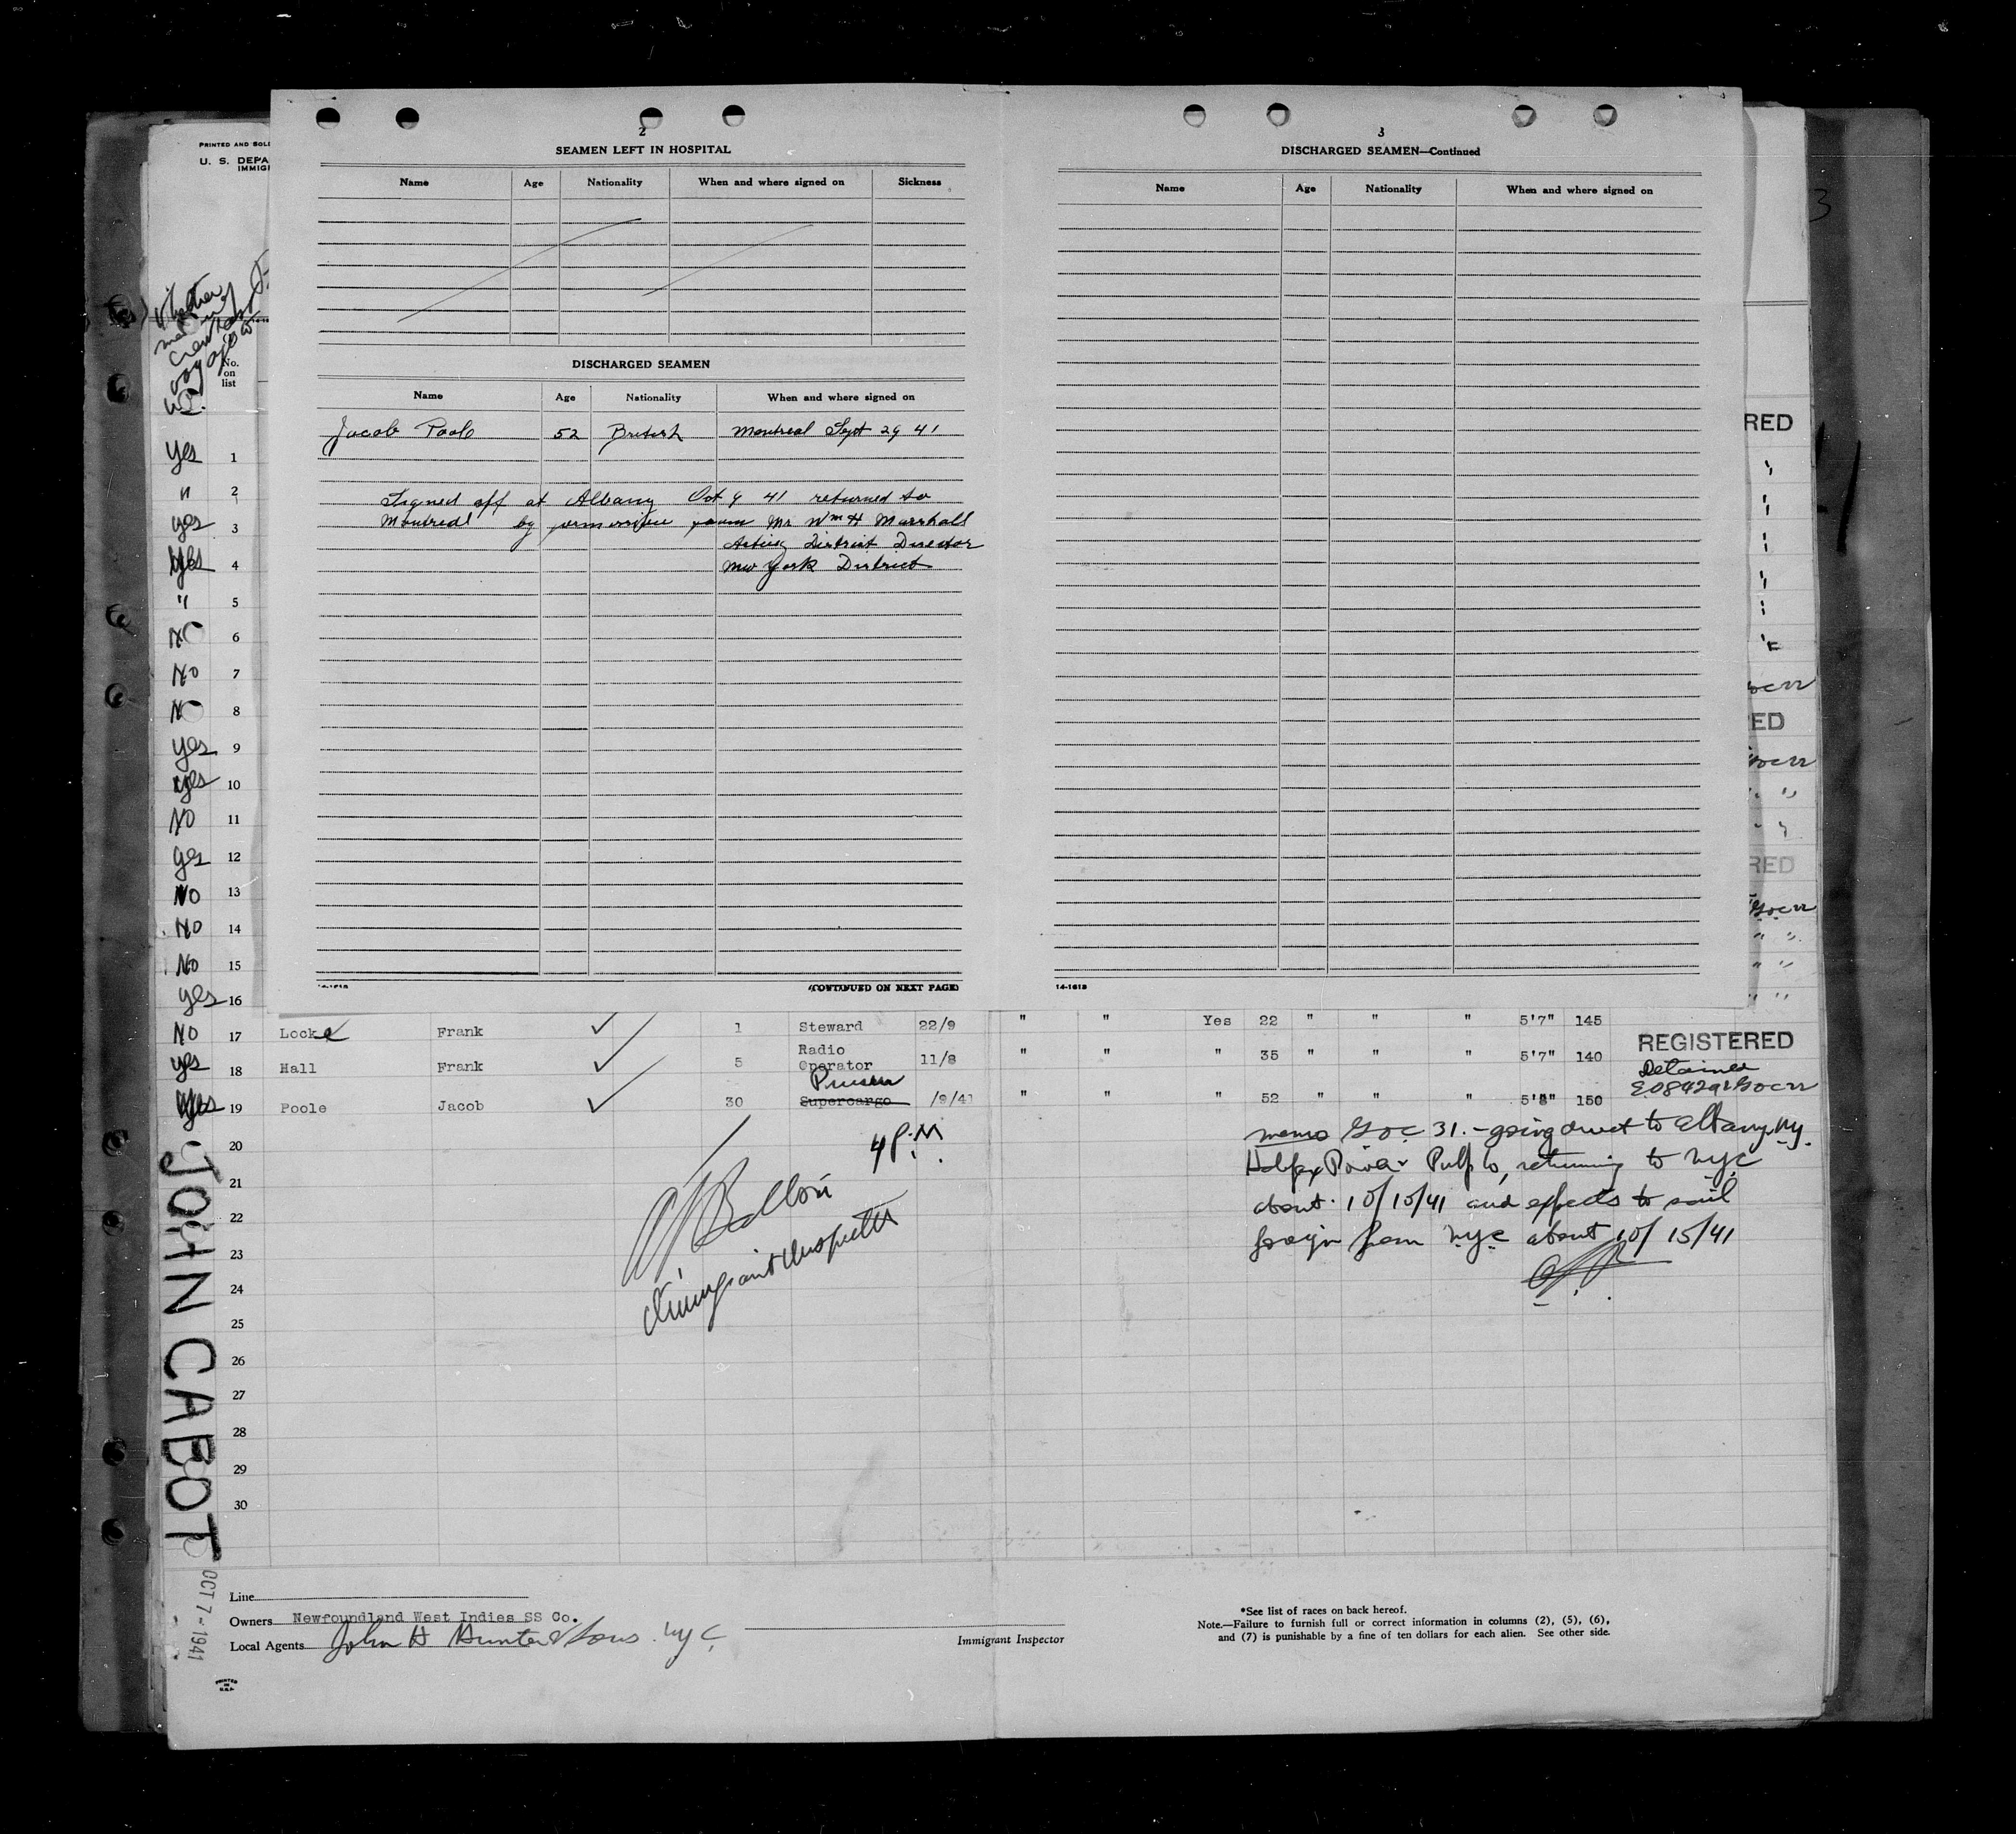 PRINTED AND SOLD
U. S. DEPA
IMMIGR
2
SEAMEN LEFT IN HOSPITAL
Name Age Nationality When and where signed on Sickness
DISCHARGED SEAMEN
Name Age Nationality When and where signed on
Jacob Poole 52 British Montreal Sept 29 41
Signed off at Albany Oct 9 41 returned to
Montreal by permission from Mr Wm H Marshall
Acting District Director
New York District
(CONTINUED ON NEXT PAGE)
3
DISCHARGED SEAMEN—Continued
Name Age Nationality When and where signed on
14-1613
3
Whether
member of
crew last
voyage to
U.S.
No.
on
list
Yes 1
" 2
yes 3
Yes 4
" 5
No 6
No 7
No 8
yes 9
yes 10
No 11
yes 12
No 13
No 14
No 15
yes 16
RED
ED
RED
No 17 Locke Frank ✓ 1 Steward 22/9 " " Yes 22 " " " 5'7" 145
yes 18 Hall Frank ✓ 5 Radio Operator 11/8 " " " 35 " " " 5'7" 140 REGISTERED
Yes 19 Poole Jacob ✓ 30 Supercargo Purser /9/41 " " " 52 " " " 5'8" 150 Detained
4 P.M.
Immigrant Inspector
memo 31.- going direct to Albany N.Y.
Power & Pulp Co, returning to NYC
about 10/10/41 and expects to sail
foreign from NYC about 10/15/41
20
21
22
23
24
25
26
27
28
29
30
JOHN CABOT
OCT 7 - 1941
Line
Owners Newfoundland West Indies SS Co.
Local Agents John H Hunter & Sons. NYC.
Immigrant Inspector
*See list of races on back hereof.
Note.—Failure to furnish full or correct information in columns (2), (5), (6),
and (7) is punishable by a fine of ten dollars for each alien. See other side.
PRINTED
IN
U.S.A.